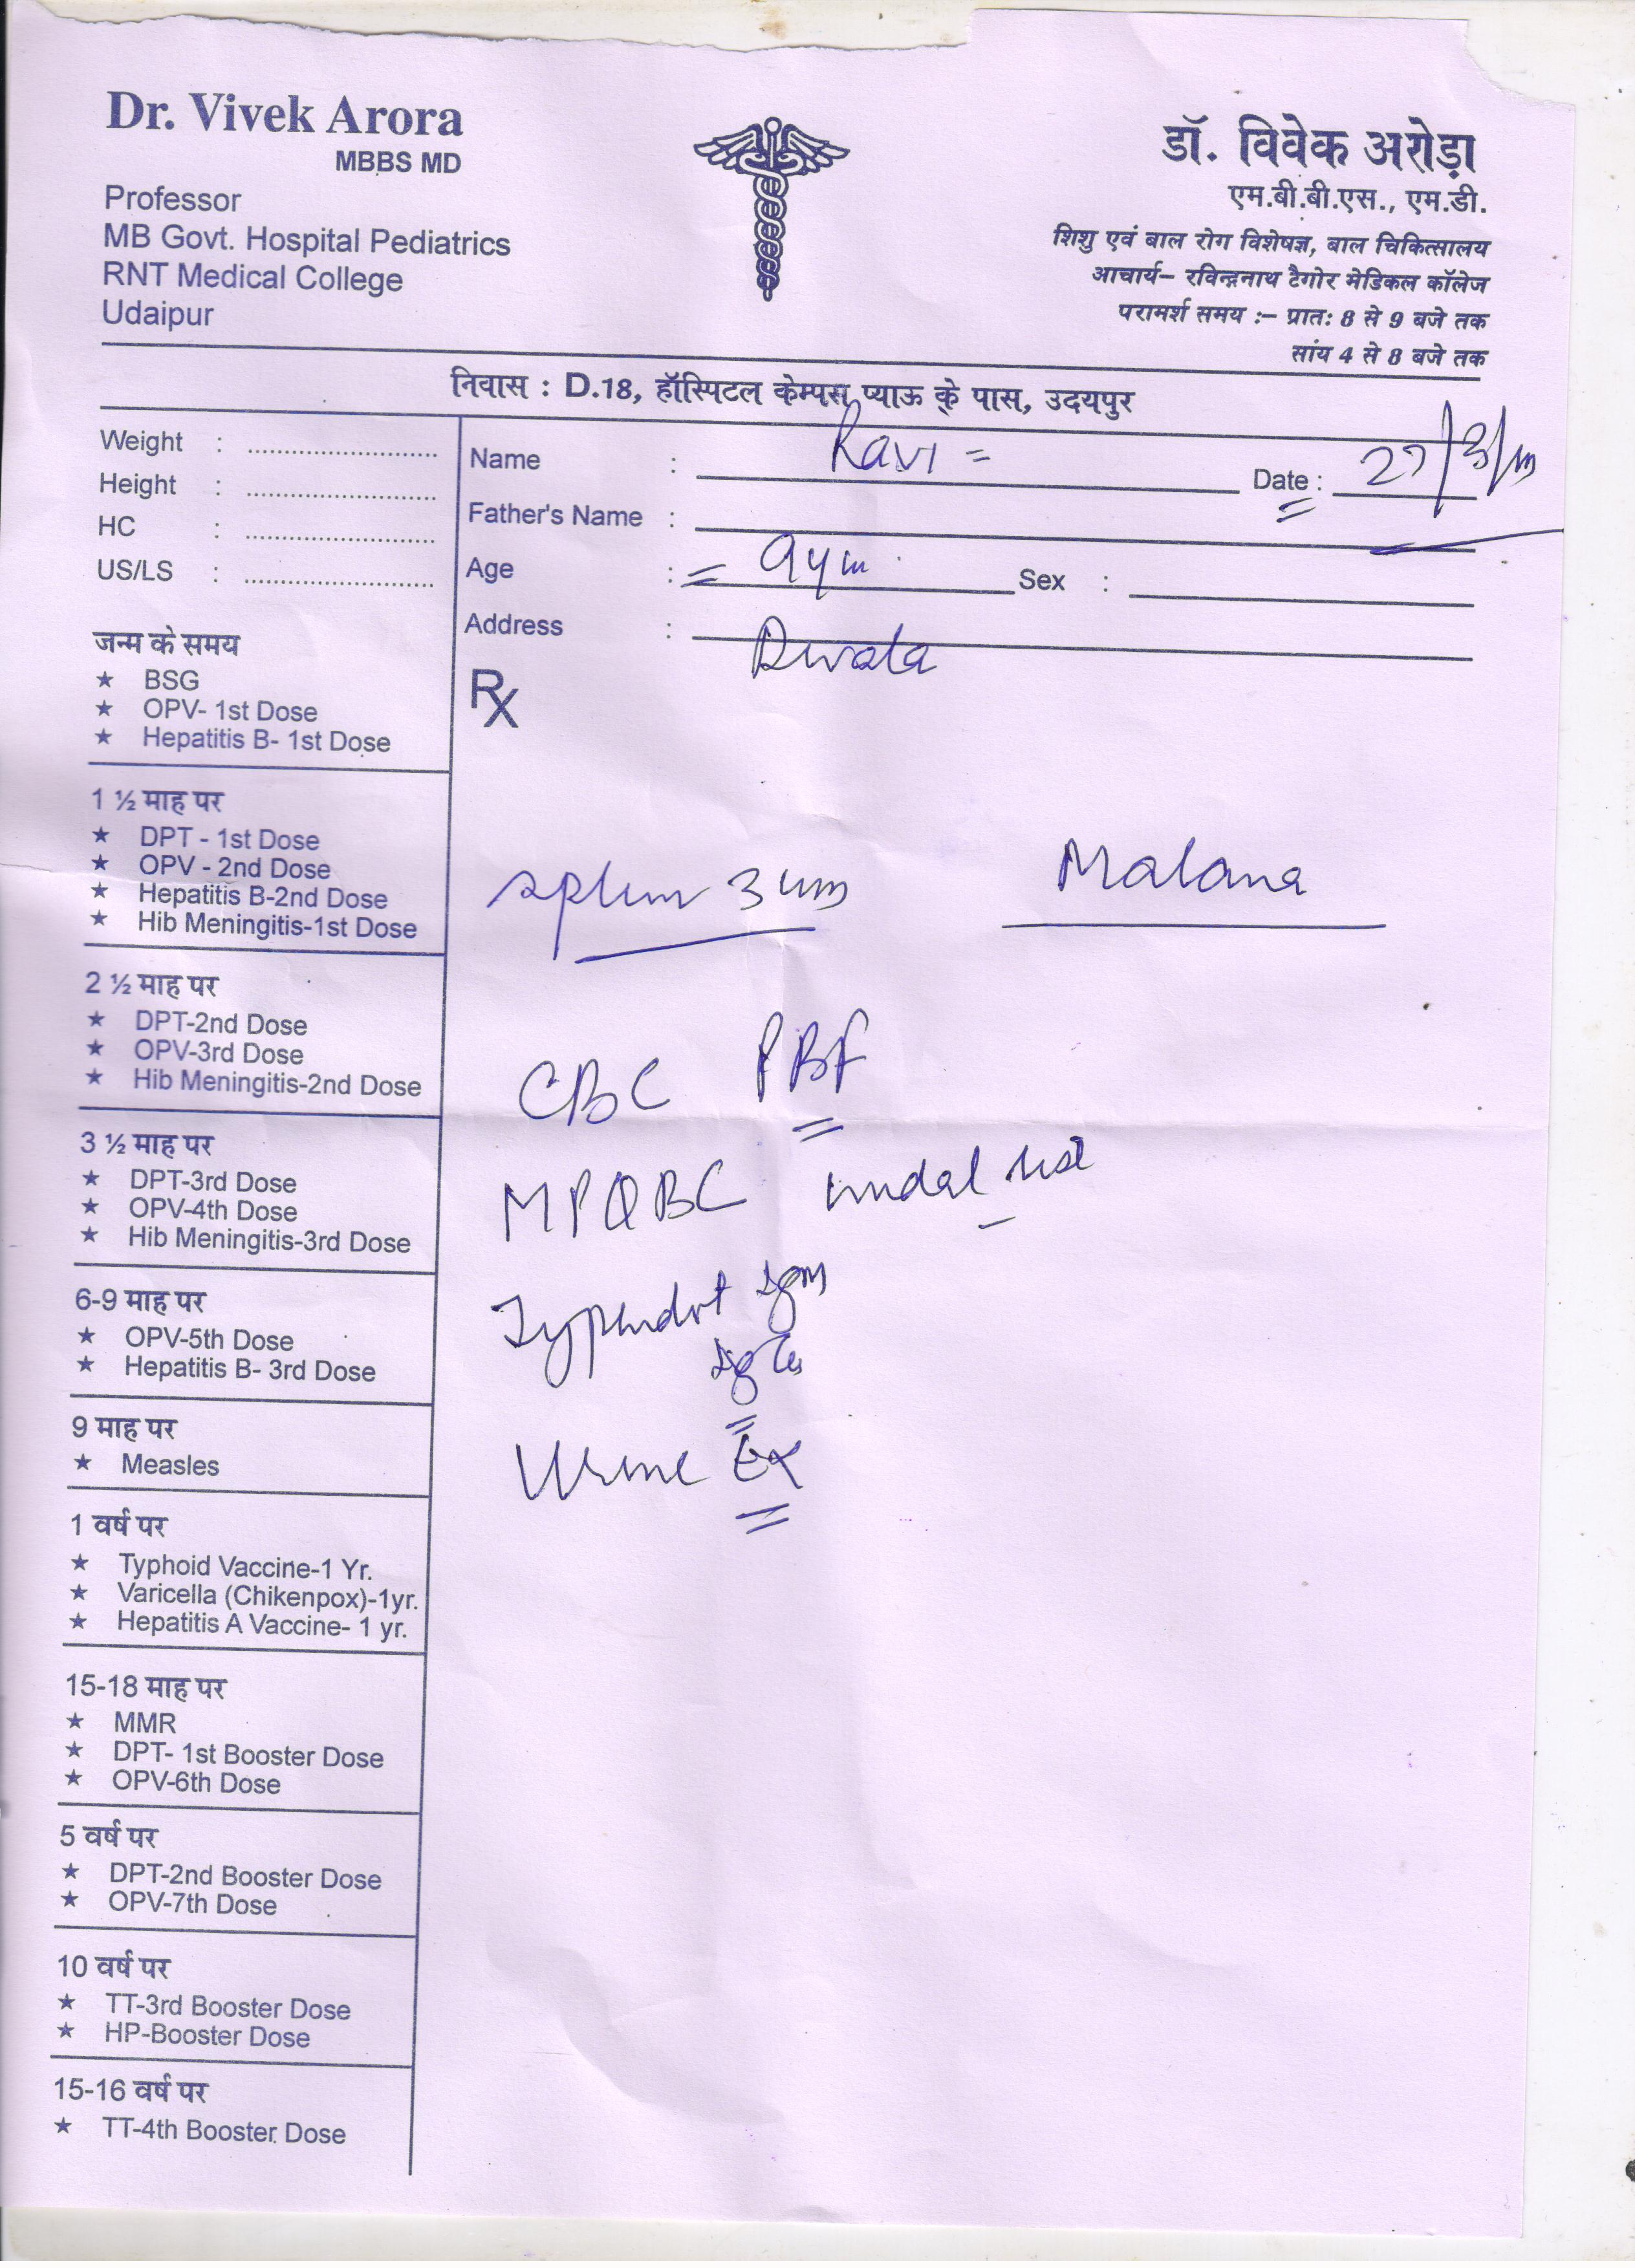 Dr. Vivek Arora
MBBS MD
Professor
MB Govt. Hospital Pediatrics
RNT Medical College
Udaipur
डॉ. विवेक अरोड़ा
एम.बी.बी.एस., एम.डी.
शिशु एवं बाल रोग विशेषज्ञ, बाल चिकित्सालय
आचार्य– रविन्द्रनाथ टैगोर मेडिकल कॉलेज
परामर्श समय :– प्रातः 8 से 9 बजे तक
सांय 4 से 8 बजे तक
निवास : D.18, हॉस्पिटल केम्पस प्याऊ के पास, उदयपुर
Weight :
Height :
HC :
US/LS :
जन्म के समय
★ BSG
★ OPV- 1st Dose
★ Hepatitis B- 1st Dose
1 ½ माह पर
★ DPT - 1st Dose
★ OPV - 2nd Dose
★ Hepatitis B-2nd Dose
★ Hib Meningitis-1st Dose
2 ½ माह पर
★ DPT-2nd Dose
★ OPV-3rd Dose
★ Hib Meningitis-2nd Dose
3 ½ माह पर
★ DPT-3rd Dose
★ OPV-4th Dose
★ Hib Meningitis-3rd Dose
6-9 माह पर
★ OPV-5th Dose
★ Hepatitis B- 3rd Dose
9 माह पर
★ Measles
1 वर्ष पर
★ Typhoid Vaccine-1 Yr.
★ Varicella (Chikenpox)-1yr.
★ Hepatitis A Vaccine- 1 yr.
15-18 माह पर
★ MMR
★ DPT- 1st Booster Dose
★ OPV-6th Dose
5 वर्ष पर
★ DPT-2nd Booster Dose
★ OPV-7th Dose
10 वर्ष पर
★ TT-3rd Booster Dose
★ HP-Booster Dose
15-16 वर्ष पर
★ TT-4th Booster Dose
Name : Ravi Date : 27/8/
Father's Name :
Age : Sex :
Address :
Rx
3 Malaria
CBC PBF
MPQBC
Typhidot IgM
IgG
Urine Ex